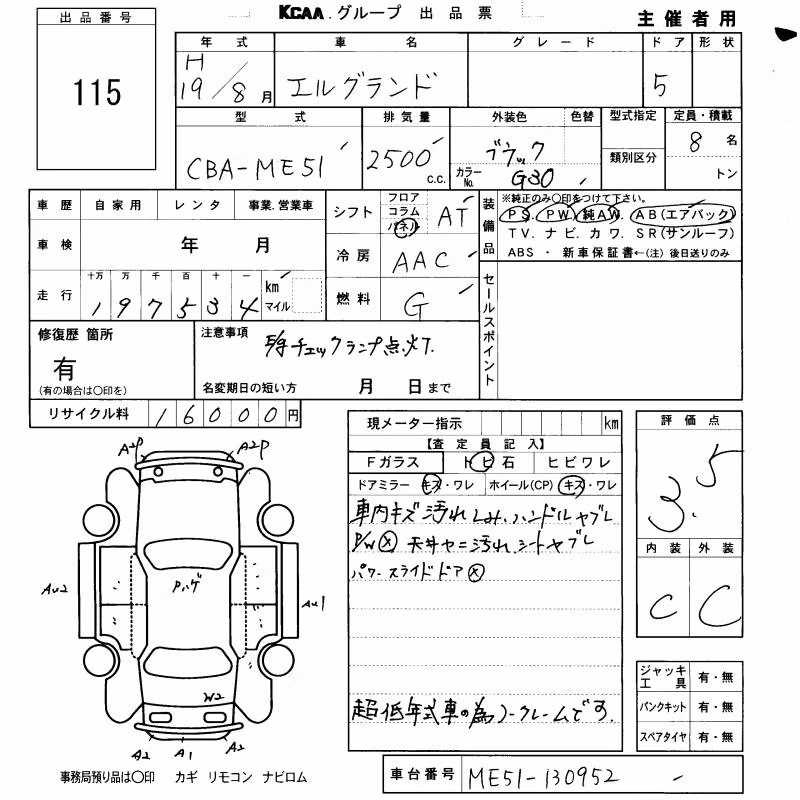 KCAA.グループ 出品票
主催者用
出品番号
115
年式 車名 グレード ドア 形状
H19/8月 エルグランド 5
型式 排気量 外装色 色替 型式指定 定員・積載
CBA-ME51 2500c.c. ブラック 8名
カラーNo. G30 類別区分 トン
車歴 自家用 レンタ 事業.営業車
シフト フロア コラム パネル AT
装備品 ※純正のみ○印をつけて下さい。
PS. PW. 純AW. AB(エアバック)
TV.ナビ.カワ.SR(サンルーフ)
ABS・新車保証書←(注)後日送りのみ
車検 年 月
冷房 AAC
走行 十万 万 千 百 十 一 km マイル
197534
燃料 G
セールスポイント
修復歴 箇所
有
(有の場合は○印を)
注意事項
チェックランプ点灯.
名変期日の短い方 月 日まで
リサイクル料 16000円
現メーター指示 km
【査定員記入】
Fガラス トビ石 ヒビワレ
ドアミラー キズ・ワレ ホイール(CP) キズ・ワレ
車内キズ 汚れ シミ.ハンドルヤブレ
P/W× 天井ヤニ汚れ.シートヤブレ
パワースライドドア×
超低年式車の為ノークレームです.
評価点
3.5
内装 外装
C C
ジャッキ工具 有・無
パンクキット 有・無
スペアタイヤ 有・無
車台番号 ME51-130952
A2P A2P
AU2 Pハゲ AU1
W2
A2 A1 A2
事務局預り品は○印 カギ リモコン ナビロム